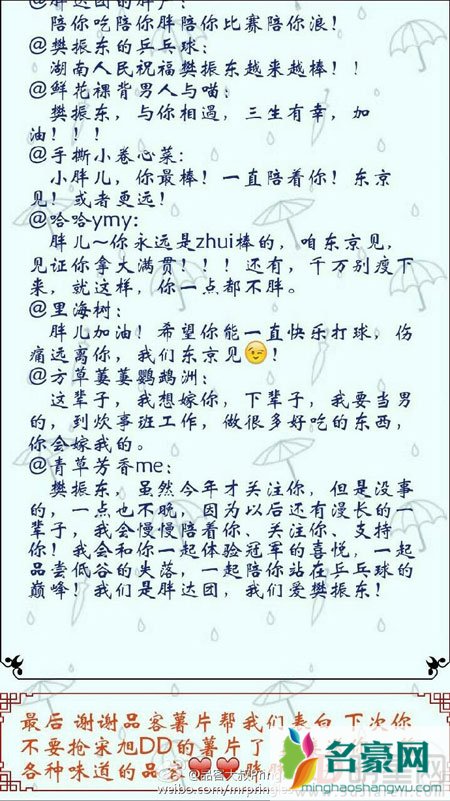 陪你吃陪你胖陪你比赛陪你浪！
@樊振东的乒乓球：
湖南人民祝福樊振东越来越棒！！
@鲜花裸背男人与喵：
樊振东，与你相遇，三生有幸，加
油！！！
@手撕小卷心菜：
小胖儿，你最棒！一直陪着你！东京
见！或者更远！
@哈哈ymy：
胖儿~你永远是zhui棒的，咱东京见，
见证你拿大满贯！！！还有，千万别瘦下
来，就这样，你一点都不胖。
@里海树：
胖儿加油！希望你能一直快乐打球，伤
痛远离你，我们东京见😉！
@方草萋萋鹦鹉洲：
这辈子，我想嫁你，下辈子，我要当男
的，到炊事班工作，做很多好吃的东西，
你会嫁我的。
@青草芳香me：
樊振东，虽然今年才关注你，但是没事
的，一点也不晚，因为以后还有漫长的一
辈子，我会慢慢陪着你、关注你、支持
你！我会和你一起体验冠军的喜悦，一起
品尝低谷的失落，一起陪你站在乒乓球的
巅峰！我们是胖达团，我们爱樊振东！
最后 谢谢品客薯片帮我们表白 下次你
不要抢宋旭DD的薯片了
各种味道的品客
weibo.com/mrpringles
名豪网
minghaoshangbiao.com